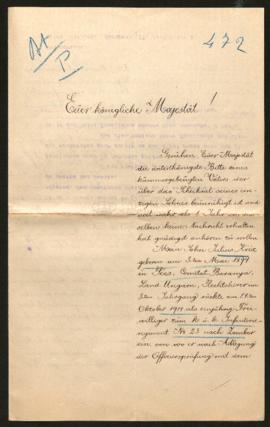 A4/P
472
Euer königliche Majestät!
Geruhen Euer Majestät
die unterthänigste Bitte eines
kummergebeugten Vaters der
über das Schicksal seines ein-
zigen Sohnes beunruhigt ist und
weil mehr als 1 Jahr von dem-
selben keine Nachricht erhalten
hat gnädigst anhören zu wollen
Mein Sohn Julius
geboren am 3ten Mai 1891
in Pécs, Comitat Baranya,
Land Ungarn, Rechtshörer im
3ten Jahrgang rückte am 1ten
Oktober 1911 als einjährig Frei-
williger zum k. u. k. Infanterie-
regiment No 23 nach Zombor
ein, von wo er nach Ablegung
der Offiziersprüfung mit dem